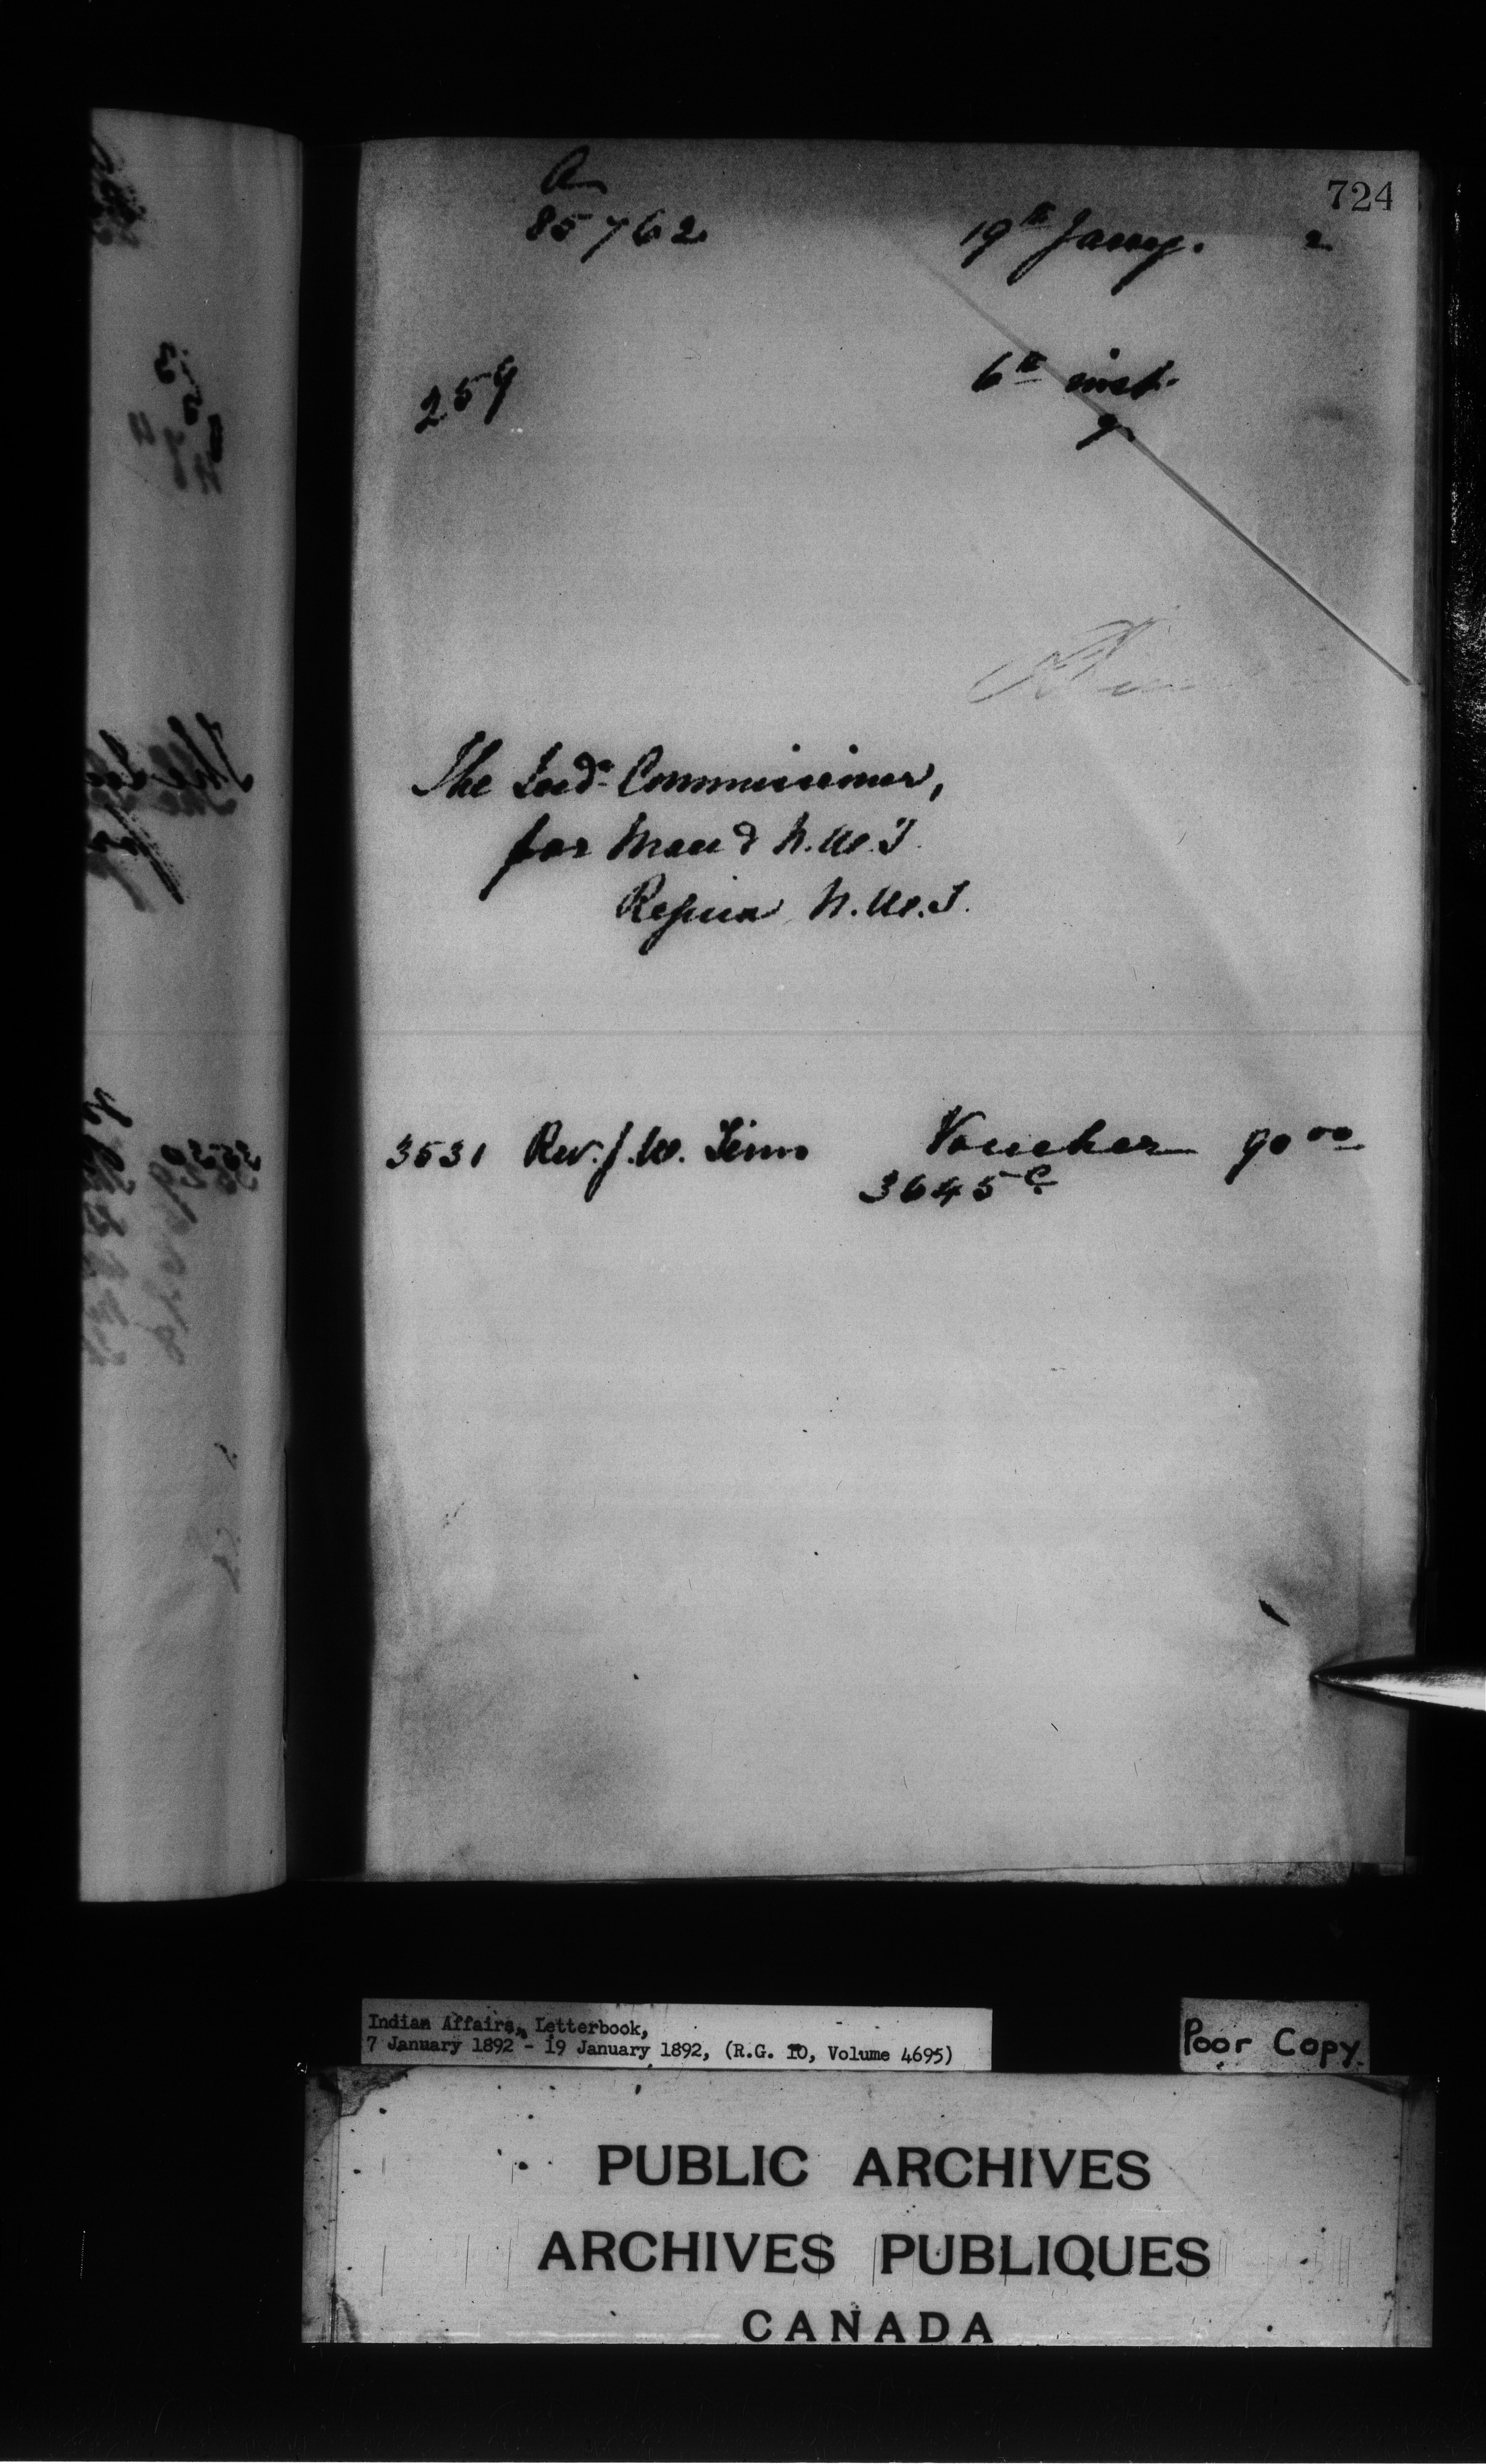 724
A
85762
19th Jany. 2
259
6th inst.
9
The Ind. Commissioner,
for Man & N.W.T.
Regina N.W.T.
3531 Rev. J. W. Tims Voucher 90 00
3645 C.
Indian Affairs, Letterbook,
7 January 1892 - 19 January 1892, (R.G. 10, Volume 4695)
Poor Copy.
PUBLIC ARCHIVES
ARCHIVES PUBLIQUES
CANADA